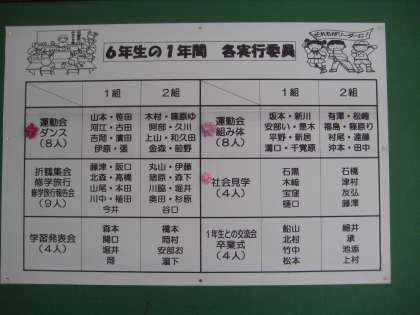 6年生の1年間 各実行委員
1組 2組 1組 2組
運動会
ダンス
(8人)
山本・笹田
河江・古田
吉階・濱田
伊原・張
木村・篠原ゆ
阿部・久川
上山・和久田
金森・前野
運動会
組み体
(8人)
坂本・新川
安部い・是木
平野・新居
溝口・千賀原
有澤・松崎
福島・篠原り
村尾・遠藤
沖本・田中
折鶴集会
修学旅行
修学旅行報告会
(9人)
藤津・阪口
北森・高橋
山尾・本田
川中・植田
今井
丸山・伊藤
猪原・森下
川脇・堀井
奥田・杉原
谷口
社会見学
(4人)
石黒
木﨑
宝窪
樋口
石橋
津村
友弘
藤澤
学習発表会
(4人)
森本
関口
堀井
岡
橋本
岡村
安部お
瀧下
1年生との交流会
卒業式
(4人)
船山
北村
竹中
松本
細井
承
池添
上村